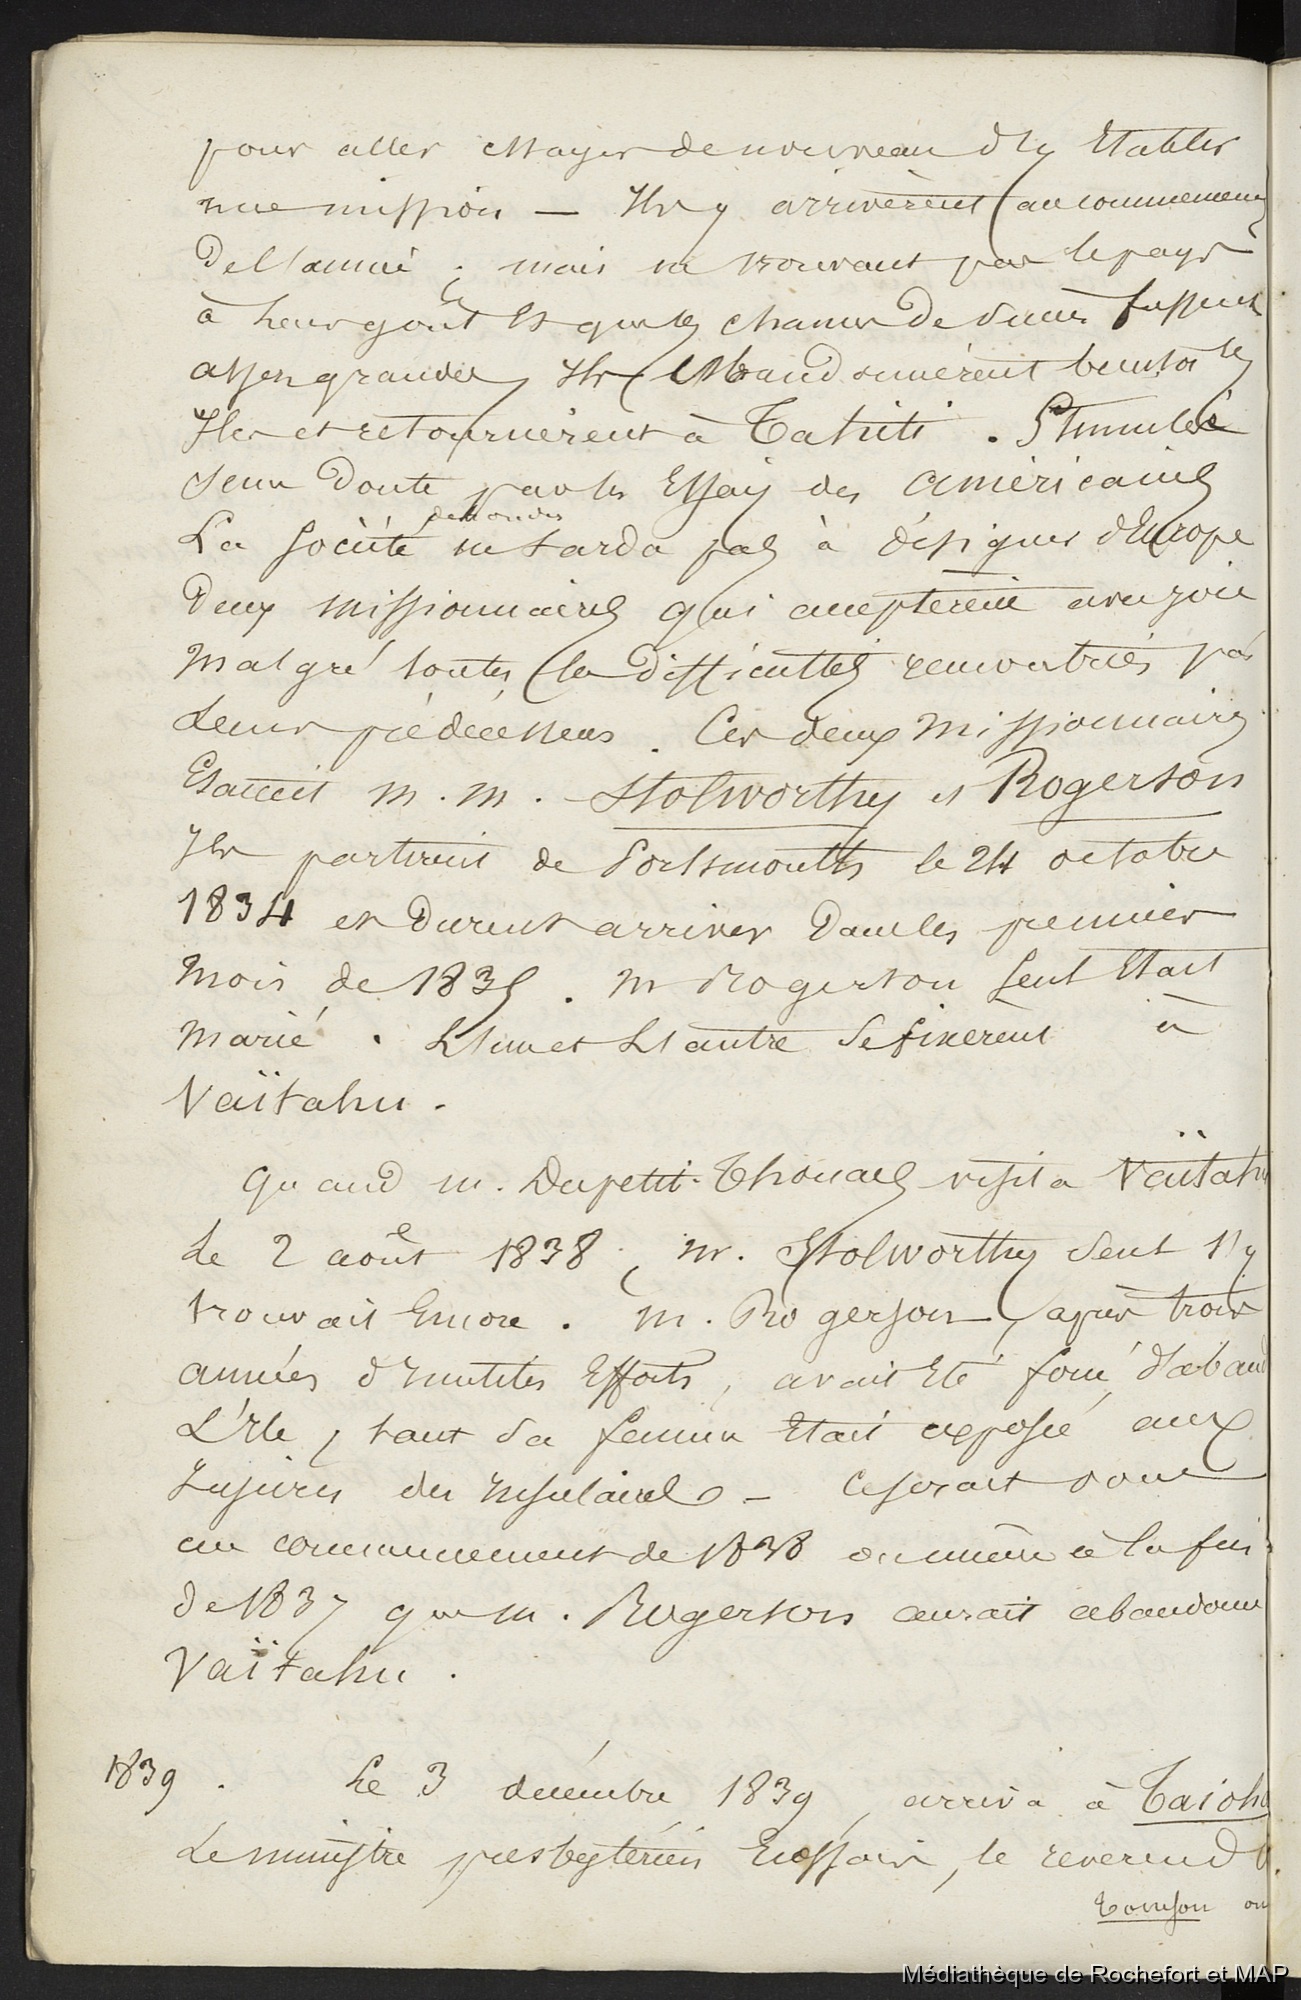 pour aller essayer de nouveau d'y Etablir
une mission — Ils y arrivèrent au commencem
De l'année ; mais ne trouvant pas le pays
à leur goût Et que les chances de succès fussent
assez grandes, Ils Abandonnèrent bientot les
Iles et retournèrent à Tahiti . Stimulée
sans Doute par les Essais des américains
La Société de Londres ne tarda pas à désigner d'Europe
Deux missionnaires qui acceptèrent avec joie
malgré toutes les difficultés rencontrées par
Leurs prédécesseurs . Ces deux missionnaires
Etaient m. m. Stolworthy et Rogerson
Ils partirent de Portsmouth le 24 octobre
1834 et Durent arriver Dans les premiers
mois de 1835 . m Rogerson seul Etait
marié . L'un et L'autre se fixèrent à
Vaïtahu .
Quand m. Dupetit-Thouars visita Vaïtahu
Le 2 août 1838 , m. Stolworthy seul s'y
trouvait Encore . m. Rogerson , après trois
années d'Inutiles Efforts , avait Eté forcé d'aband
L'Ile , tant sa femme Etait exposée aux
Injures des Insulaires — Ce serait donc
au commencement de 1838 ou même à la fin
de 1837 que m. Rogerson aurait abandonné
Vaïtahu .
1839 . Le 3 décembre 1839 , arriva à Taioha
Le ministre presbytérien Ecossais , le reverend
Tomson ou
Médiathèque de Rochefort et MAP